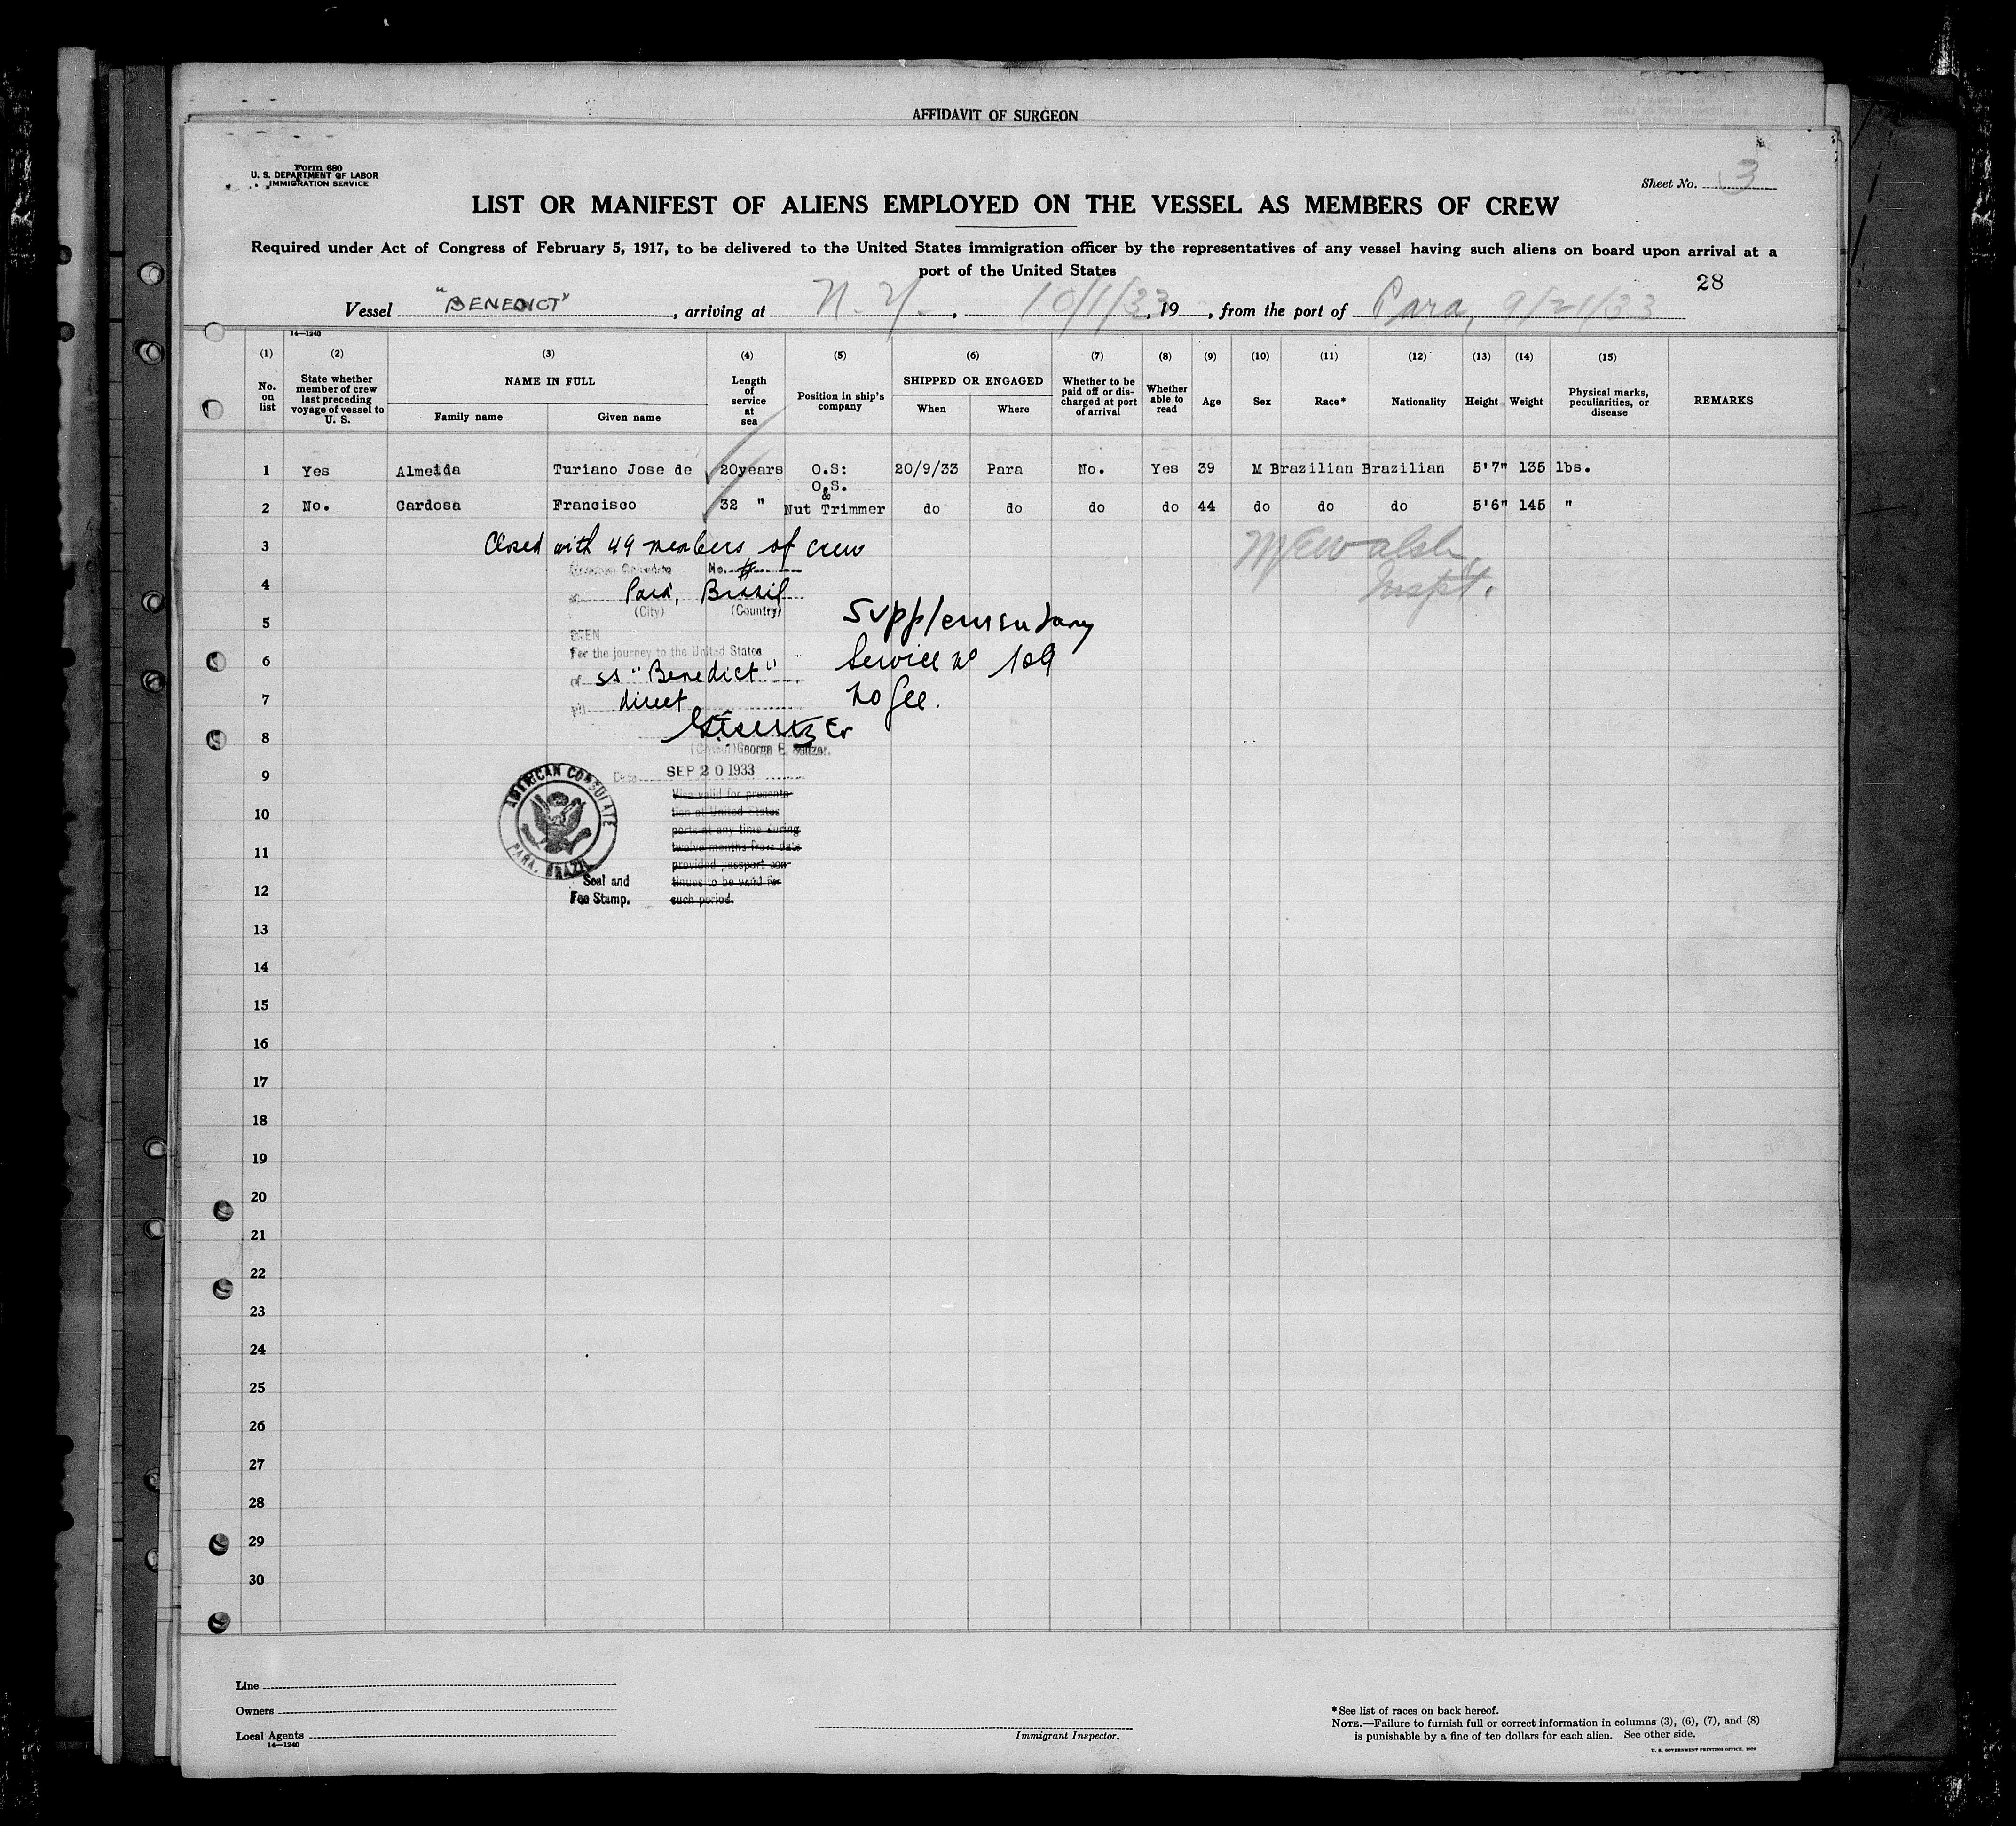 AFFIDAVIT OF SURGEON
Form 680
U. S. DEPARTMENT OF LABOR
IMMIGRATION SERVICE
Sheet No. 3
LIST OR MANIFEST OF ALIENS EMPLOYED ON THE VESSEL AS MEMBERS OF CREW
Required under Act of Congress of February 5, 1917, to be delivered to the United States immigration officer by the representatives of any vessel having such aliens on board upon arrival at a
port of the United States
28
Vessel "BENEDICT", arriving at N.Y., 10/1/33, 19, from the port of Para, 9/21/33
14—1240
(1) (2) (3) (4) (5) (6) (7) (8) (9) (10) (11) (12) (13) (14) (15)
No. on list
State whether member of crew last preceding voyage of vessel to U. S.
NAME IN FULL
Family name
Given name
Length of service at sea
Position in ship's company
SHIPPED OR ENGAGED
When
Where
Whether to be paid off or discharged at port of arrival
Whether able to read
Age
Sex
Race*
Nationality
Height
Weight
Physical marks, peculiarities, or disease
REMARKS
1 Yes Almeida Turiano Jose de 20years O.S: 20/9/33 Para No. Yes 39 M Brazilian Brazilian 5'7" 135 lbs.
2 No. Cardosa Francisco 32 " O.S. & Nut Trimmer do do do do 44 do do do 5'6" 145 "
3 Closed with 49 members of crew
McWalsh
Inspt.
No.
4 Pará, Brazil
(City) (Country)
5 Supplementary
SEEN
For the journey to the United States
6 ss "Benedict" Service No 109
7 direct no fee.
8
George E. Seltzer.
9 SEP 20 1933
AMERICAN CONSULATE
PARA, BRAZIL
Visa valid for presenta-
tion at United States
10
ports at any time during
11 twelve months from date
provided passport con-
12 Seal and tinues to be valid for
Fee Stamp. such period.
13
14
15
16
17
18
19
20
21
22
23
24
25
26
27
28
29
30
Line
Owners
Local Agents
14—1240
Immigrant Inspector.
*See list of races on back hereof.
NOTE.—Failure to furnish full or correct information in columns (3), (6), (7), and (8)
is punishable by a fine of ten dollars for each alien. See other side.
U. S. GOVERNMENT PRINTING OFFICE, 1929